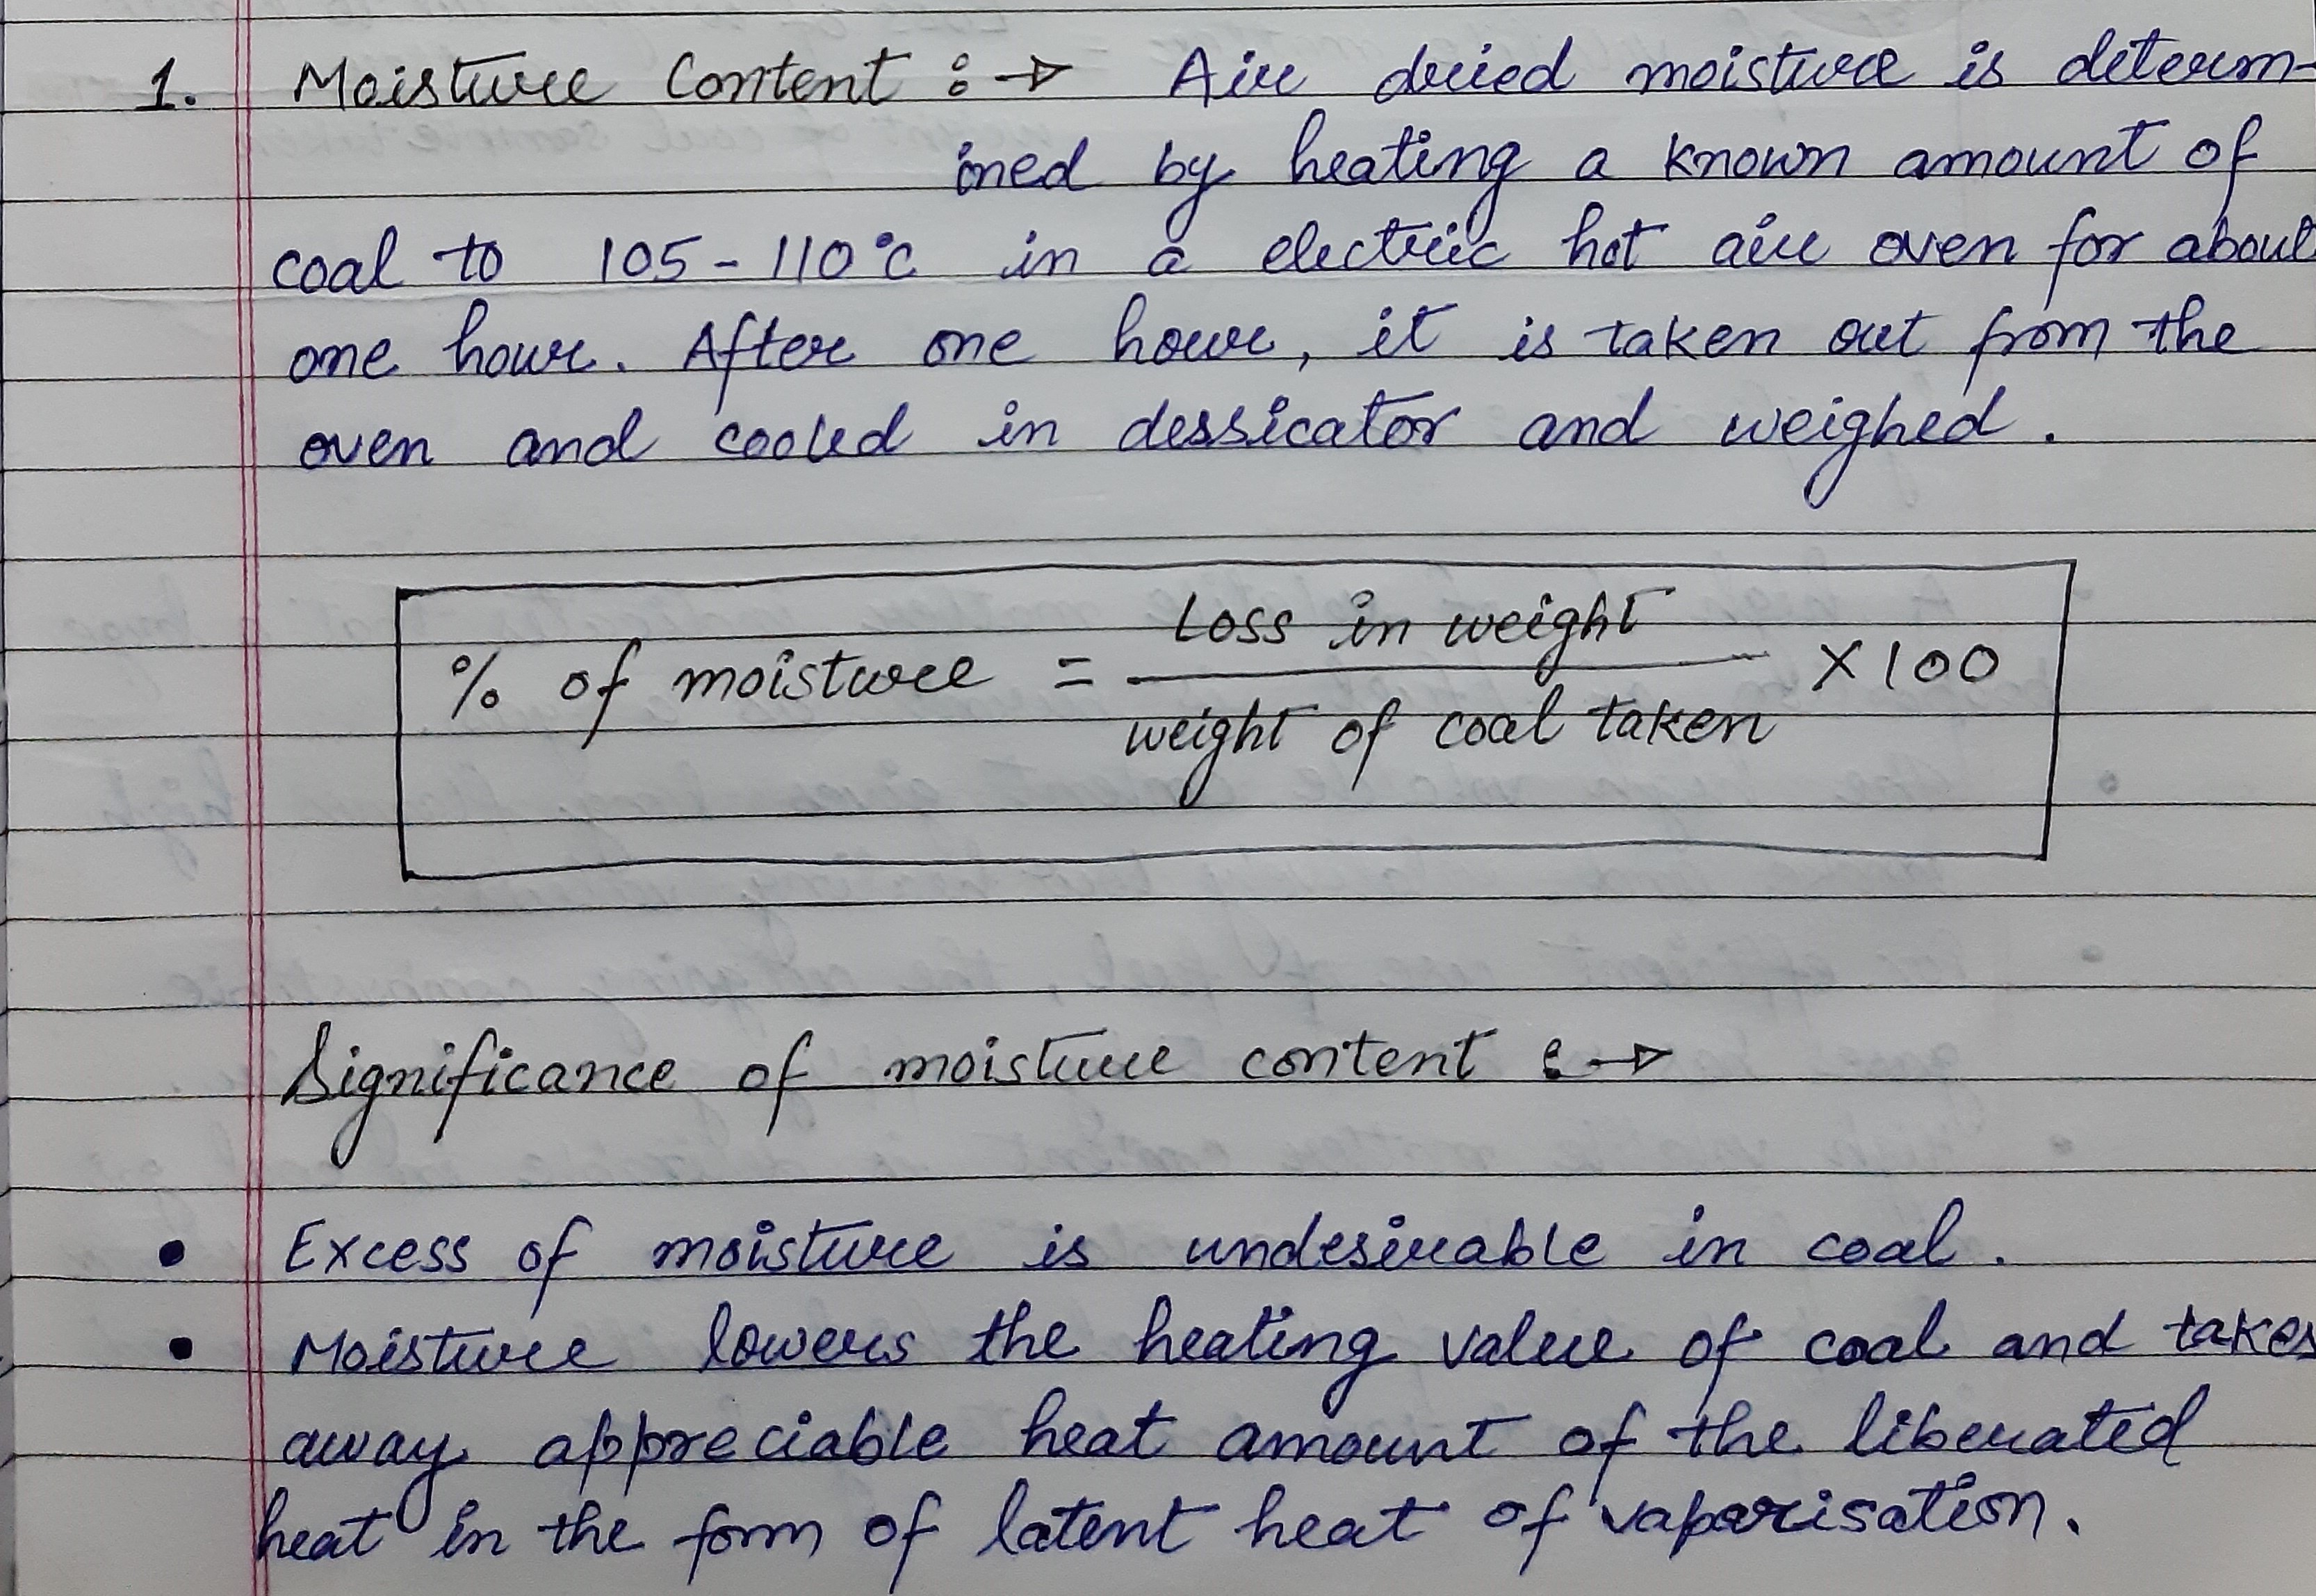 1. Moisture Content :→ Air dried moisture is determ-
ined by heating a known amount of
coal to 105-110°C in a electric hot air oven for about
one hour. After one hour, it is taken out from the
oven and cooled in dessicator and weighed.
% of moisture = Loss in weight / weight of coal taken × 100
Significance of moisture content :→
• Excess of moisture is undesirable in coal.
• Moisture lowers the heating value of coal and takes
away appreciable heat amount of the liberated
heat in the form of latent heat of vaparisation.